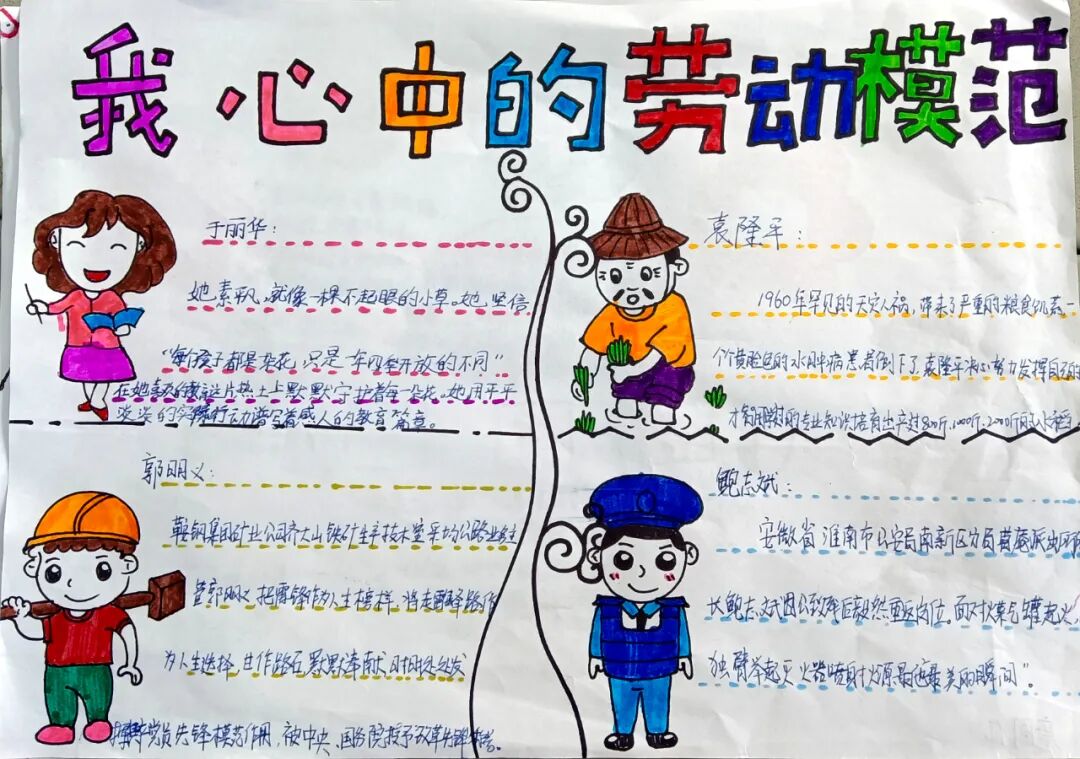 我心中的劳动模范
于丽华：
她素朴，就像一棵不起眼的小草。她坚信
“每个孩子都是朵花，只是在四季开放的不同”
在她喜爱的教这片热土上默默守护着每一朵花。她用平平
淡淡的行动谱写着感人的教育篇章。
袁隆平：
1960年罕见的天灾人祸，带来了严重的粮食饥荒一
个个黄脸色的水肿病患者倒下了，袁隆平决心努力发挥自己的
才智用的专业知识培育出亩产过800斤，1000斤，2000斤的水稻
郭明义：
鞍钢集团矿业公司齐大山铁矿生产技术室采场公路业务主
管郭明义把雷锋作为人生榜样，将走雷锋路作
为人生选择，甘作路石默默奉献，时时处处发
挥党员先锋模范作用，被中央、国务院授予改革先锋
鲍志斌：
安徽省淮南市公安局南新区分局派出所
长鲍志斌因公致残后毅然重返岗位。面对煤气罐起火，
独臂举起灭火器喷射火源是他最美的瞬间”。